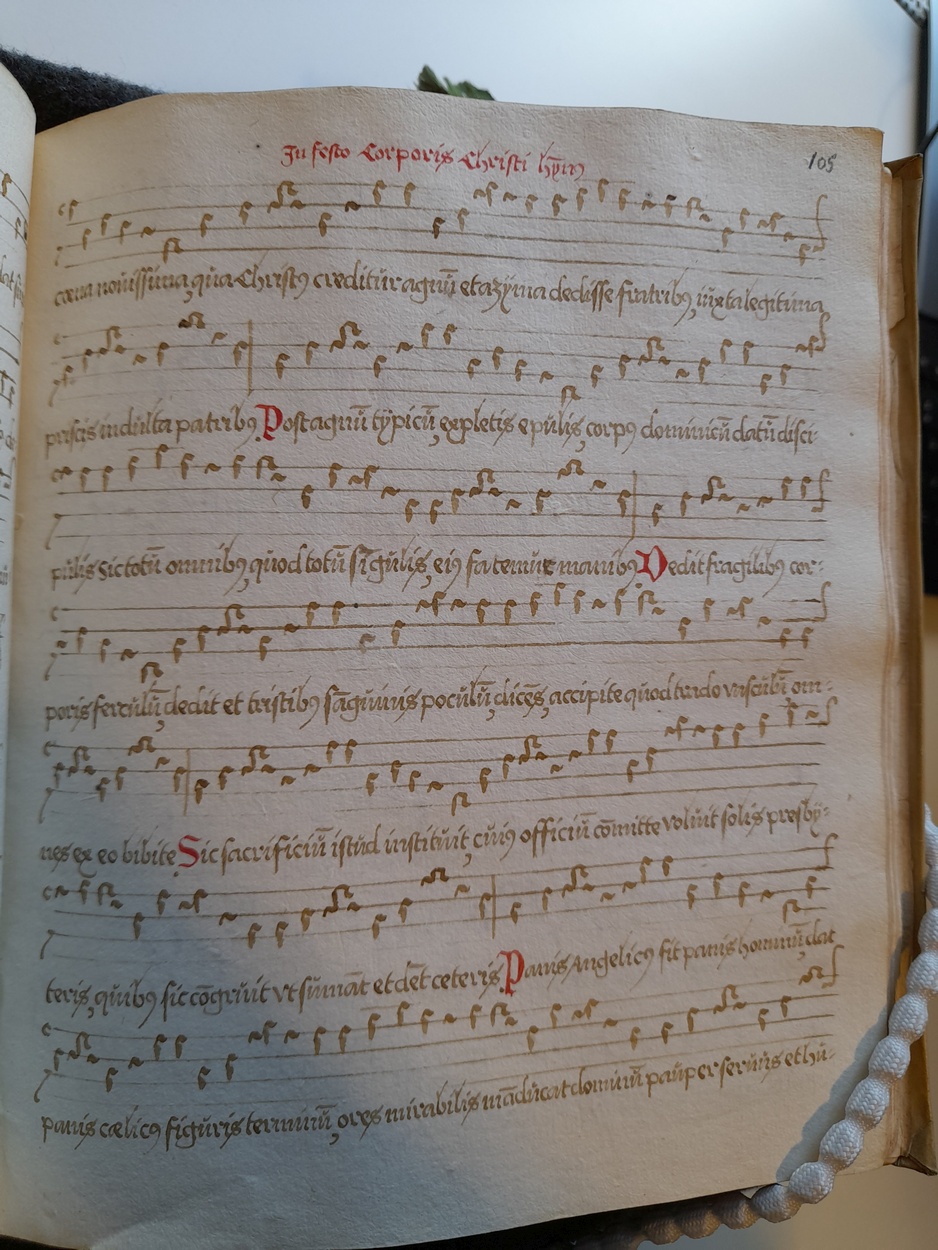 In festo Corporis Christi hȳm9
105
cœna nouissima, qua Christ9 creditur agnū et azyma dedisse fratrib9, iuxta legitima
priscis indulta patrib9. Post agnū typicū, expletis epulis, corp9 dominicū datū disci
pulis Sic totū omnib9, quod totū sīgulis, ei9 fatemur manib9 Dedit fragilib9 cor-
poris ferculū, dedit et tristib9 sāguinis poculū, dicēs, accipite quod trado vasculū om-
nes ex eo bibite. Sic sacrificiū istud instituit, cui9 officiū cōmitte voluit solis presby-
teris, quib9 sic cōgruit vt sumāt et dēt ceteris. Panis Angelic9 fit panis hominū, dat
panis cælic9 figuris terminū, o res mirabilis māducat dominū pauper seruus et hu-